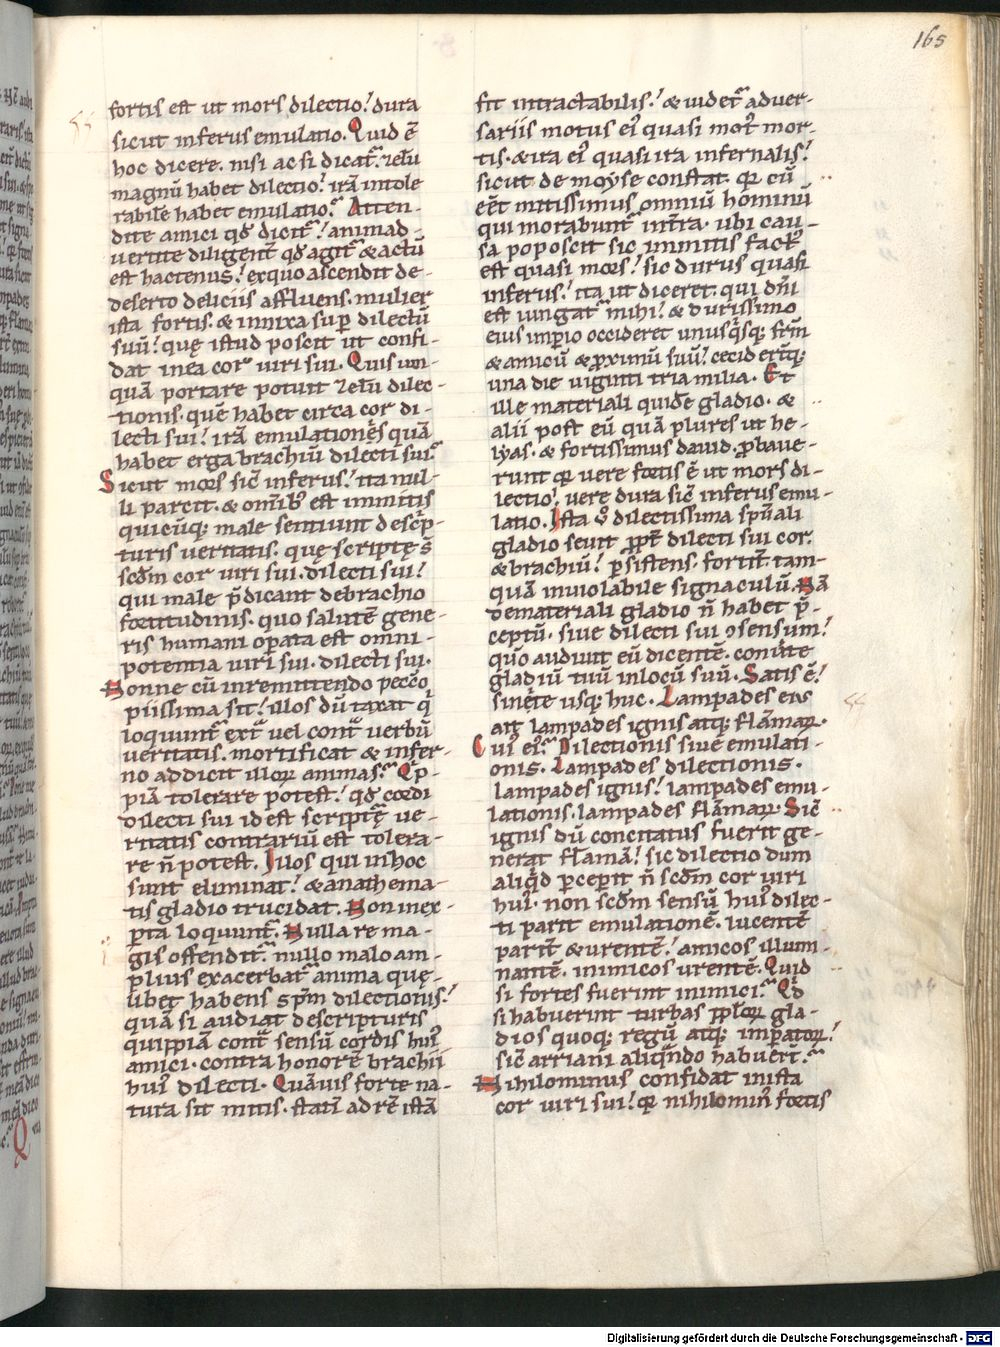 165
fortis est ut mors dilectio? dura
sicut infernus emulatio. Quid ē
hoc dicere. nisi ac si dicat̃. zelū
magnū habet dilectio? irā intole
rabilē habet emulatio. Atten-
dite amici qđ dicit̃? animad-
vertite diligent̃ qđ agit̃ & actū
est hactenus? ex quo ascendit de-
deserto deliciis affluens. mulier
ista fortis. & innixa sup̄ dilectū
suū? quę istud poscit ut confi-
dat in ea cor viri sui. Quis un-
quā portare potuit zelū dilec-
tionis. quē habet circa cor di-
lecti sui? irā emulationēs quā
habet erga brachiū dilecti sui.
Sicut mors sic̄ inferus? ita nul-
li parcit. & omib; est inmitis
quicūq; male sentiunt de sc̄ip-
turis veritatis. quę scriptę s̄
scđm cor viri sui. dilecti sui?
qui male p̄dicant de brachio
fortitudinis. quo salutē gene-
ris humani op̄ata est omni-
potentia viri sui. dilecti sui.
Nonne cū in remittendo pecc̄o
piissima sit? illos dū taxat q̇
loquunt̃ ext̃ vel cont̃ verbū
veritatis. mortificat & infer-
no addicit illoꝝ animas. Qip-
piā tolerare potest? qđ cordi
dilecti sui id est scriptę ve-
ritatis contrariū est tolera-
re ñ potest. Illos qui in hoc
sunt eliminat? & anathema-
tis gladio trucidat. Non inex-
p̱ta loquunt̃. Nulla re ma-
gis offendit̃. nullo malo am-
plius exacerbat̃ anima quę-
libet habens sp̄m dilectionis?
quā si audiat de scripturis
quippiā cont̃ sensū cordis hui᾿
amici. contra honorē brachii
hui᾿ dilecti. Quāvis forte na-
tura sit mitis. statī ad rē istā
fit intractabilis? & videt̃ adver-
sariis motus ei᾿ quasi mot᾿ mor-
tis. & ira ei᾿ quasi ira infernalis?
sicut de moyse constat. qꝛ cū
eēt mitissimus omniū hominū
qui morabunt̃ in t̃ra. ubi cau-
sa poposcit sic inmitis fact᾿
est quasi mors? sic durus quasi
inferus? ita ut diceret. qui dn̄i
est iungat̃ mihi? & durissimo
eius imp̱io occideret unusq̇sq; fr̄m
& amicū & p̱ximū suū? ceciderūtq;
una die viginti tria milia. Et
ille materiali quidē gladio. &
alii post eū quā plures ut he-
lyas. & fortissimus david. p̱baue-
runt qꝛ vere fortis ē ut mors di-
lectio? vere dura sic̄ inferus emu-
latio. Ista v᾿ dilectissima sp̄uali
gladio sevit p̱pt̄ dilecti sui cor.
& brachiū? p̱sistens. fortit̄. tam-
quā inviolabile signaculū. Nā
de materiali gladio ñ habet p̄-
ceptū. sive dilecti sui ɔsensum?
quō audivit eū dicentē. conv̄te
gladiū tuū in locū suū. Satis ē?
sinete usq; huc. Lampades ei᾿
aīt lampades ignis atq; flāmaꝝ.
Cui᾿ ei᾿. Dilectionis sive emulati-
onis. Lampades dilectionis.
lampades ignis? lampades emu-
lationis. lampades flāmaꝝ. Sic̄
ignis dū concitatus fuerit ge-
nerat flamā? sic dilectio dum
aliqđ p̱cepit ñ scđm cor viri
hui᾿. non scđm sensū hui᾿ dilec-
ti parit emulationē. lucentē
parit̄ & urentē? amicos illumi-
nantē. inimicos urentē. Quid
si fortes fuerint inimici. Qđ
si habuerint turbas p̱p̱loꝝ gla-
dios quoq; regū atq; imp̱atoꝝ?
sic̄ arriani aliqñdo habuer̄t.
Nihilominus confidat in ista
cor viri sui? qꝛ nihilomin᾿ fortis
Digitalisierung gefördert durch die Deutsche Forschungsgemeinschaft - DFG